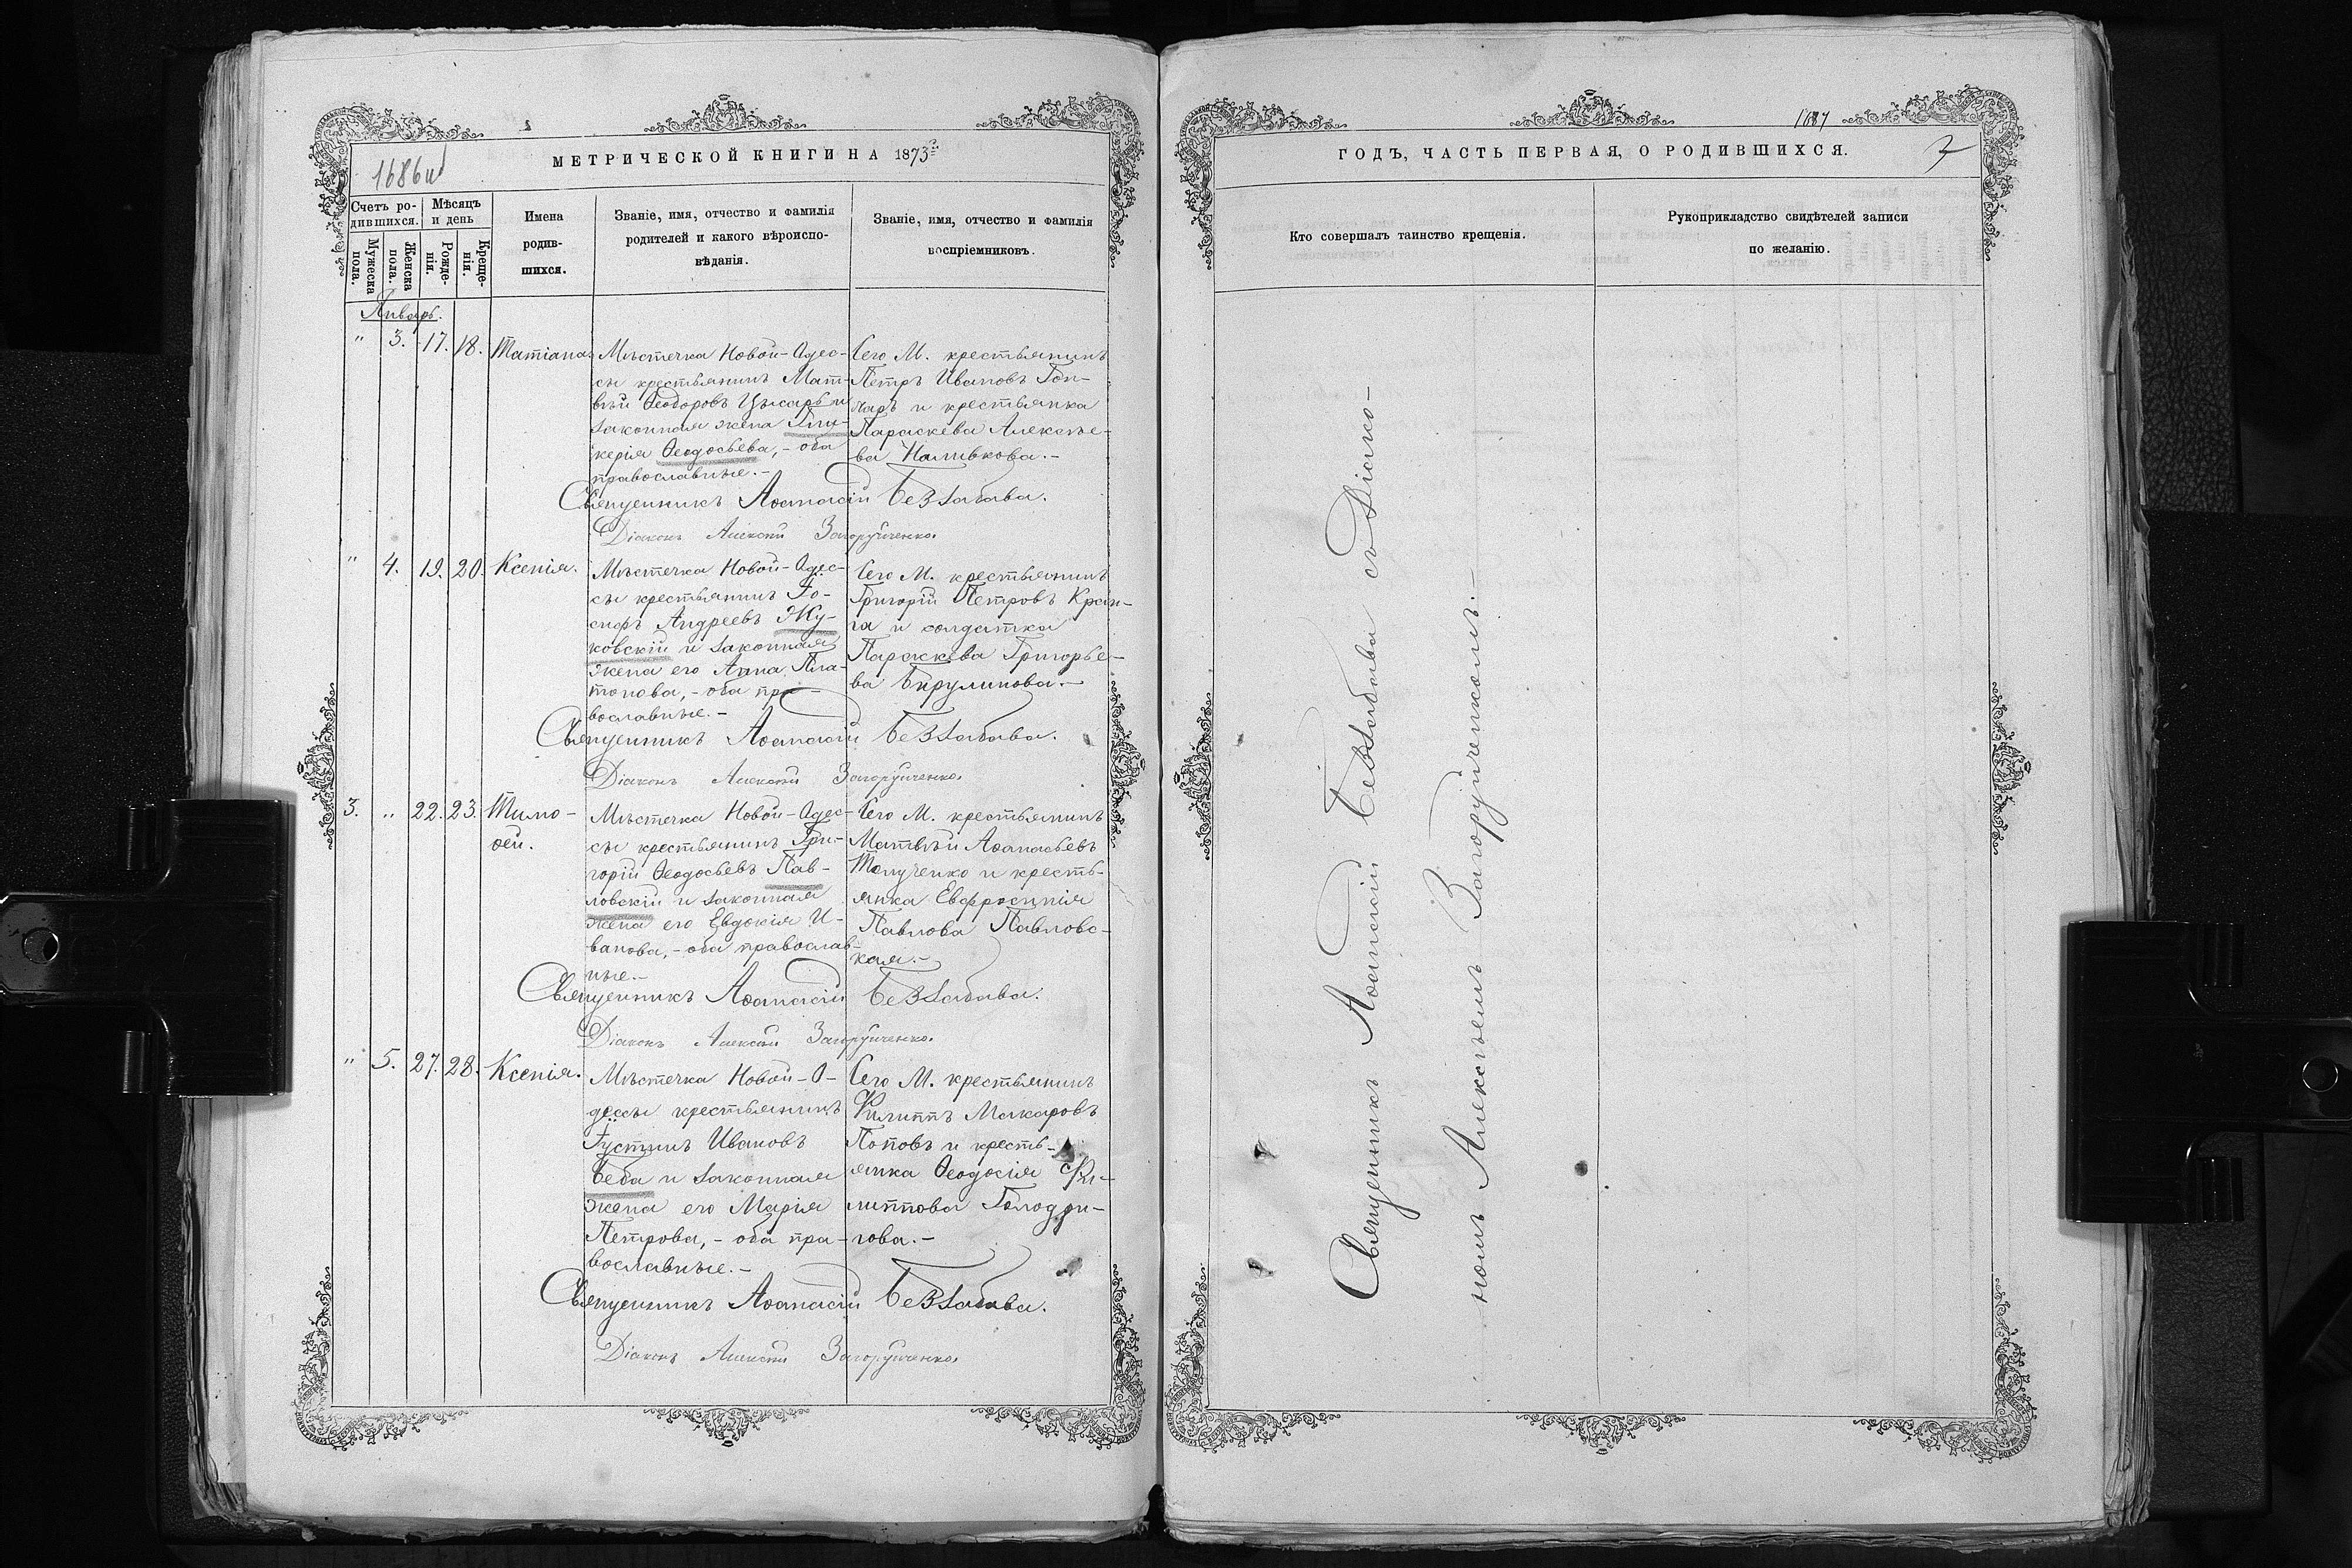 МЕТРИЧЕСКОЙ КНИГИ НА 1873
Счетъ ро-
дившихся.
Мѣсяцъ
и день
Мужеска
пола.
Женска
пола.
Рожде-
нія.
Креще-
нія.
Имена
родив-
шихся.
Званіе, имя, отчество и фамилія
родителей и какого вѣроиспо-
вѣданія.
Званіе, имя, отчество и фамилія
воспріемниковъ.
Январь.
" 3. 17. 18. Татіана
Мѣстечка Новой-Одес-
сы крестьянинъ Мат-
вѣй Ѳеодоровъ Цысарь и
законная жена Гли-
керія Ѳеодосьева, - оба
православные. -
Сего М. крестьянинъ
Петръ Ивановъ Гон-
чаръ и крестьянка
Параскева Алексѣе-
ва Наливкова. -
Священникъ Аѳанасій Беззабава.
Діаконъ Алексѣй Загоруйченко.
" 4. 19. 20. Ксенія.
Мѣстечка Новой-Одес-
сы крестьянинъ Іо-
сифъ Андреевъ Жу-
ковскій и законная
жена его Анна Пла-
тонова, - оба пра-
вославные. -
Сего М. крестьянинъ
Григорій Петровъ
и солдатка
Параскева Григорье-
ва Бирулинова. -
Священникъ Аѳанасій Беззабава.
Діаконъ Алексѣй Загоруйченко.
3. " 22. 23. Тимо-
ѳей.
Мѣстечка Новой-Одес-
сы крестьянинъ Гри-
горій Ѳеодосьевъ Пав-
ловскій и законная
жена его Евдокія И-
ванова, - оба православ-
ные. -
Сего М. крестьянинъ
Матвѣй Аѳанасьевъ
Ткаченко и кресть-
янка Евфросинія
Павлова Павловс-
кая. -
Священникъ Аѳанасій Беззабава.
Діаконъ Алексѣй Загоруйченко.
" 5. 27. 28. Ксенія.
Мѣстечка Новой-О-
дессы крестьянинъ
Іустинъ Ивановъ
Беба и законная
жена его Марія
Петрова, - оба пра-
вославные. -
Сего М. крестьянинъ
Филиппъ Макаровъ
Поповъ и кресть-
янка Ѳеодосія Фи-
липпова Голодри-
гова. -
Священникъ Аѳанасій Беззабава.
Діаконъ Алексѣй Загоруйченко.
1687
ГОДЪ, ЧАСТЬ ПЕРВАЯ, О РОДИВШИХСЯ.
7
Кто совершалъ таинство крещенія.
Рукоприкладство свидѣтелей записи
по желанію.
Священникъ Аѳанасій Беззабава съ Діако-
номъ Алексѣемъ Загоруйченкомъ. -